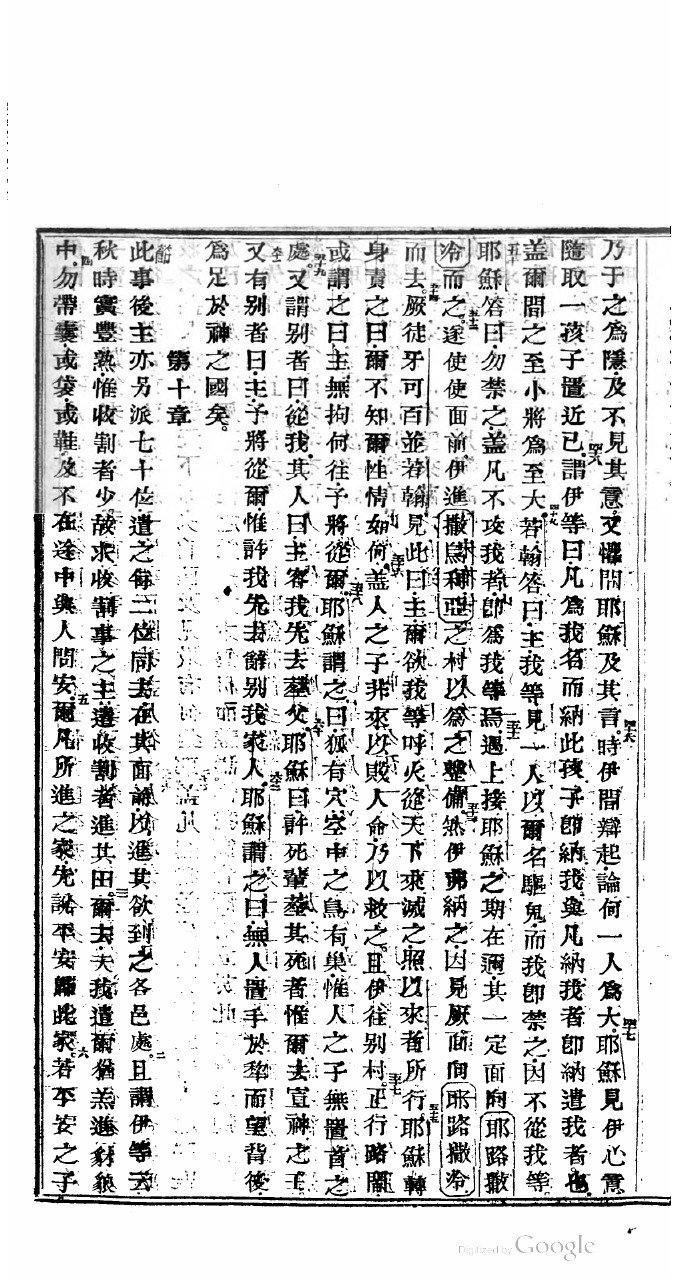 乃于之為隱及不見其意又懼問耶穌及其言。時伊間辯起論何一人為大。耶穌見伊心意
隨取一孩子置近已。謂伊等曰凡為我名而納此孩子卽納我與凡納我者卽納遣我者也。
盖爾間之至小將為至大。若翰答曰主我等見一人以爾名驅鬼而我卽禁之因不從我等
耶穌答曰勿禁之盖凡不攻我者卽為我等焉。遇上接耶穌之期在邇其一定面向耶路撒
冷而之。遂使使面前伊進撒馬利亞之村以為之整備。然伊弗納之因見厥面向耶路撒冷。
而去。厥徒牙可百並若翰見此曰主爾欲我等呼火從天下來滅之照以來者所行。耶穌轉
身責之曰爾不知爾性情如何。盖人之子非來以敗人命乃以救之。且伊往别村。正行路間
或謂之曰主無拘何往予將從爾。耶穌謂之曰狐有穴空中之鳥有巢惟人之子無置首之
處。又謂别者曰從我。其人曰主容我先去塟父。耶穌曰許死輩塟其死者惟爾去宣神之王
又有别者曰主予將從爾惟許我先去辭别我家人。耶穌謂之曰無人置手於犂而望背後
為足於神之國矣。
第十章
此事後主亦另派七十位遣之每二位同去在其面前以進其欲到之各邑處。且謂伊等云
秋時實豐熟惟收割者少。故求收割事之主遣收割者進其田。爾去夫我遣爾猶羔進豺狼
中。勿帶囊或袋或鞋及不在途中與人問安。爾凡所進之家先說平安歸此家。若平安之子
Digitized by Google